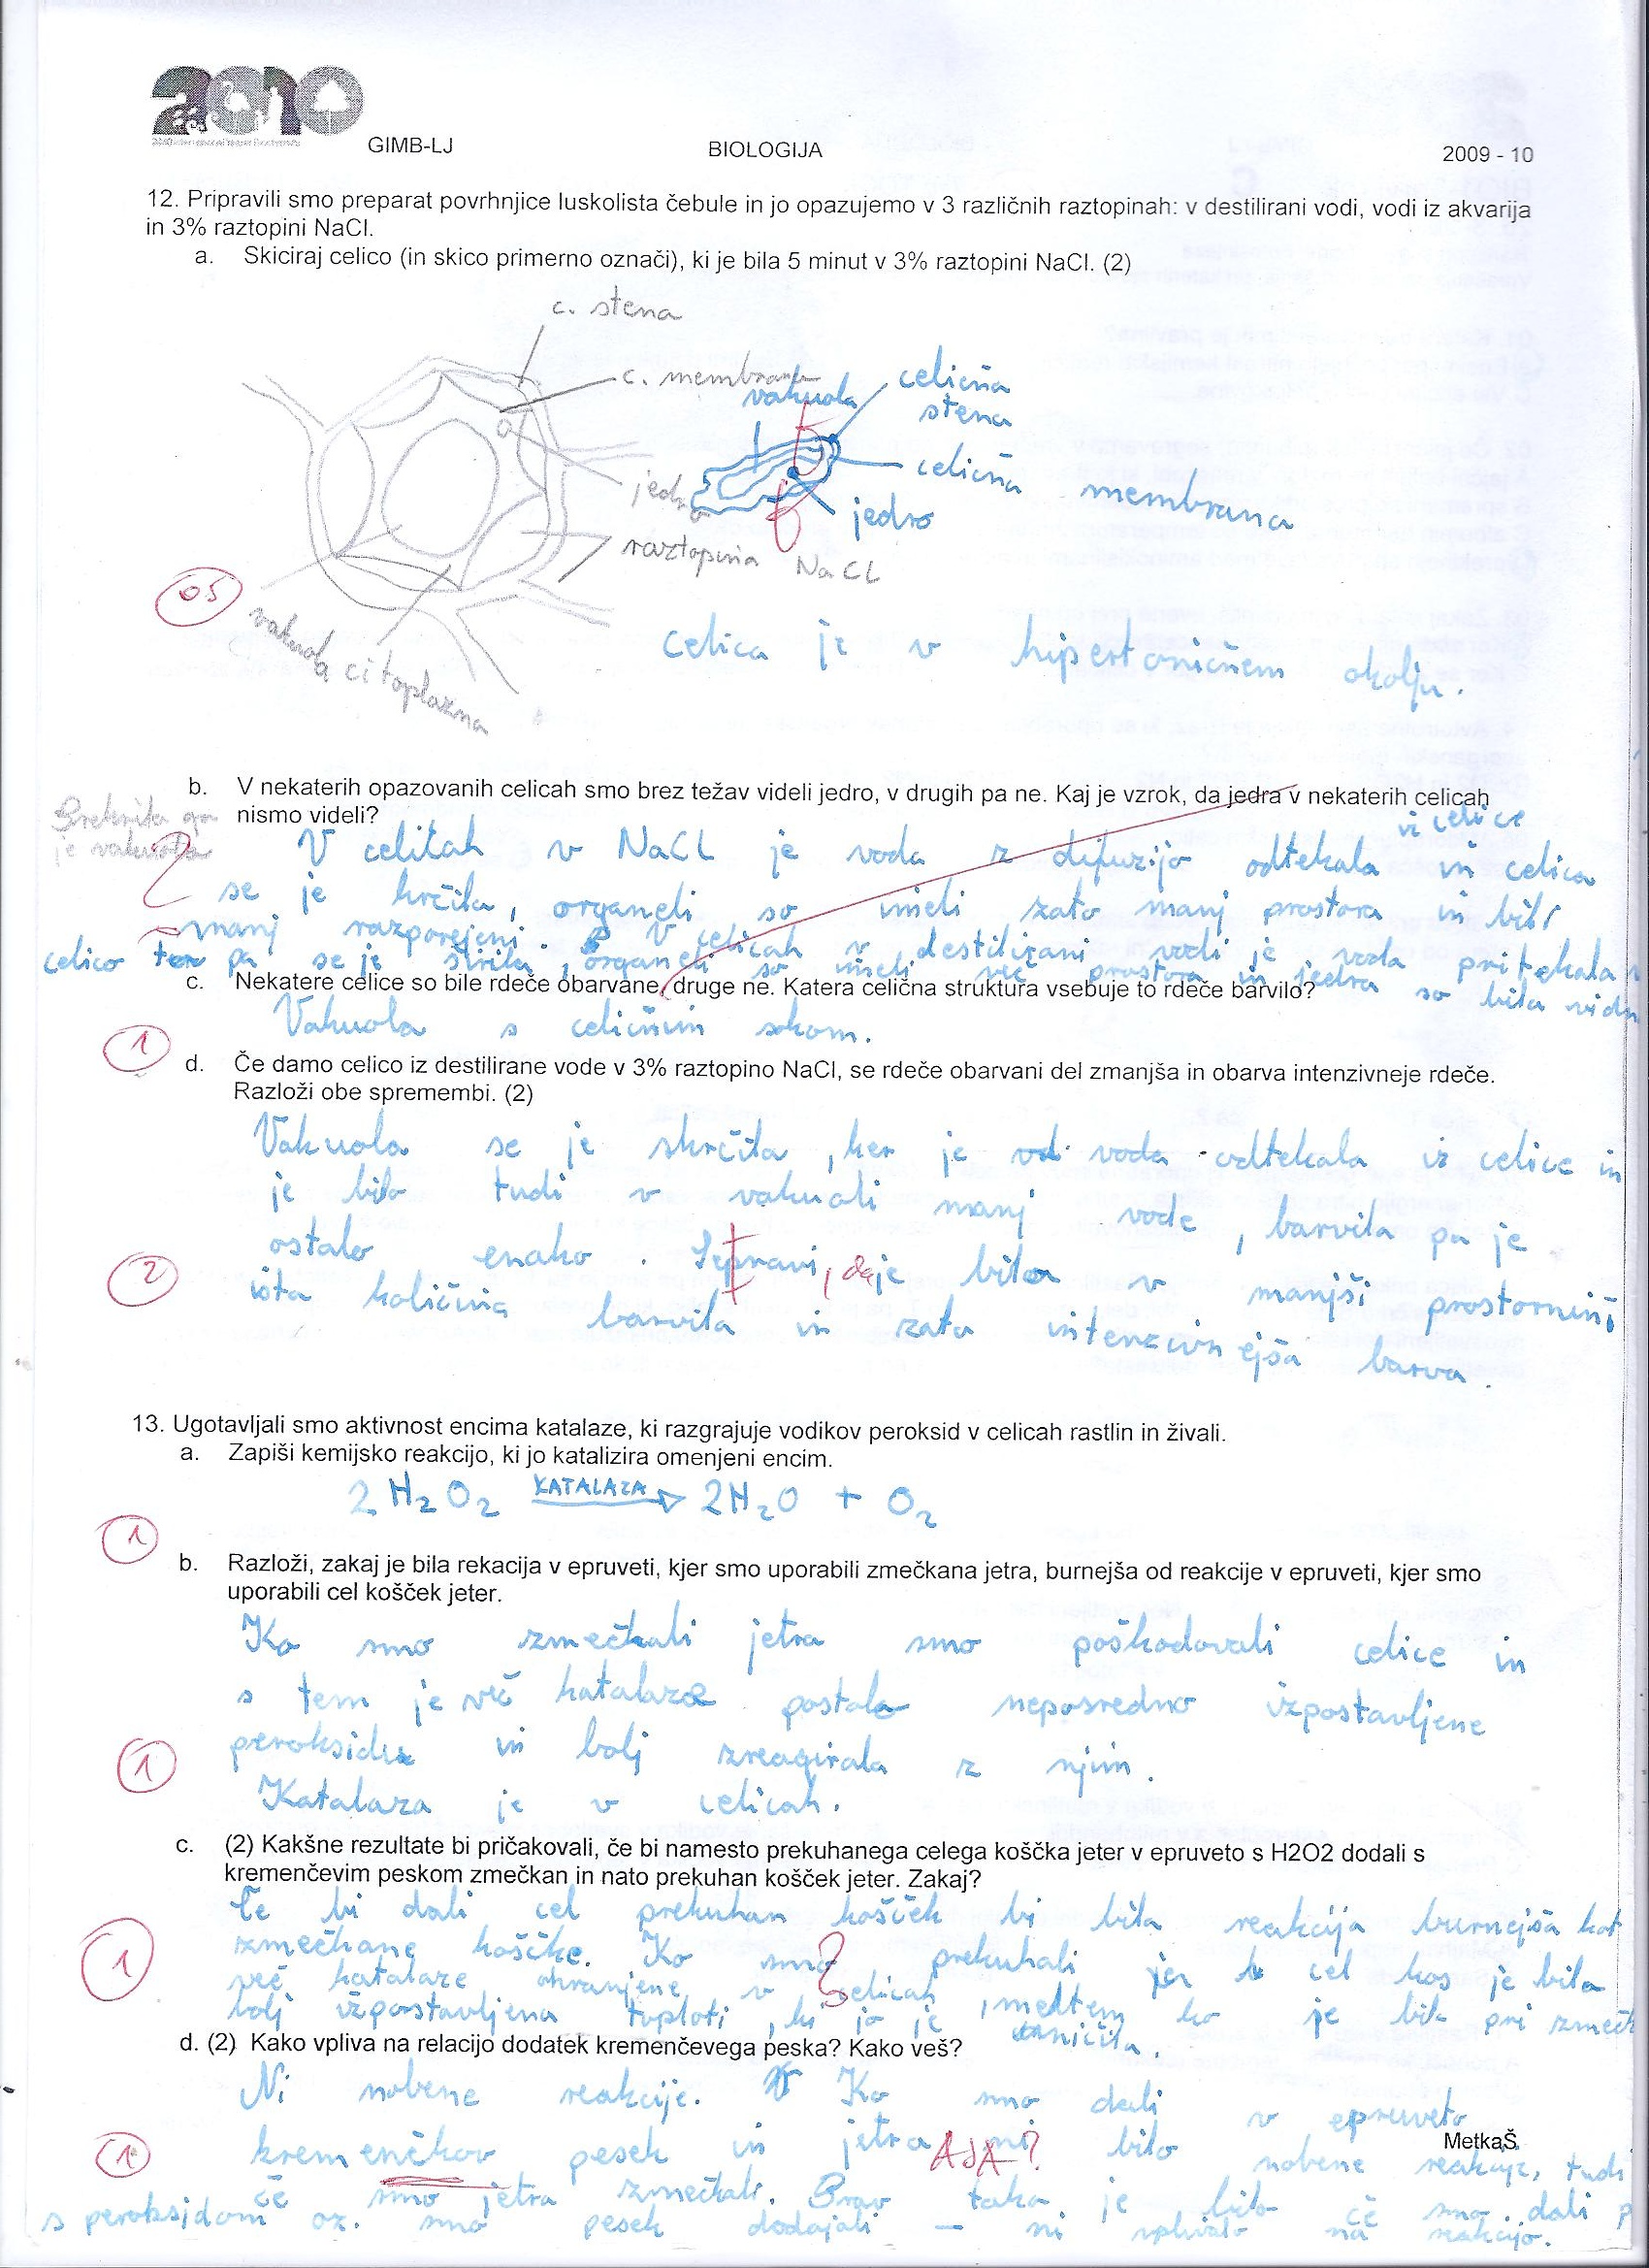 2010
GIMB-LJ BIOLOGIJA 2009 - 10
12. Pripravili smo preparat povrhnjice luskolista čebule in jo opazujemo v 3 različnih raztopinah: v destilirani vodi, vodi iz akvarija
in 3% raztopini NaCl.
a. Skiciraj celico (in skico primerno označi), ki je bila 5 minut v 3% raztopini NaCl. (2)
c. stena
c. membrana
vakuola
celična
stena
celična membrana
jedro
jedro
raztopina NaCl
05
vakuola
citoplazma
Celica je v hipertoničnem okolju.
b. V nekaterih opazovanih celicah smo brez težav videli jedro, v drugih pa ne. Kaj je vzrok, da jedra v nekaterih celicah
nismo videli?
Prekrila ga
je vakuola
V celicah v NaCl je voda z difuzijo odtekala iz celice in celica
se je krčila, organeli so imeli zato manj prostora in bili
manj razporejeni. V celicah v destilirani vodi je voda pritekala v
celico ter pa se je širila, organeli so imeli več prostora in jedra so bila vidn
c. Nekatere celice so bile rdeče obarvane, druge ne. Katera celična struktura vsebuje to rdeče barvilo?
Vakuola s celičnim sokom.
1
d. Če damo celico iz destilirane vode v 3% raztopino NaCl, se rdeče obarvani del zmanjša in obarva intenzivneje rdeče.
Razloži obe spremembi. (2)
Vakuola se je skrčila, ker je voda odtekala iz celice in
je bilo tudi v vakuoli manj vode, barvila pa je
ostalo enako. Sepravi, da je bila v manjši prostornini
2
ista količina barvila in zato intenzivnejša barva.
13. Ugotavljali smo aktivnost encima katalaze, ki razgrajuje vodikov peroksid v celicah rastlin in živali.
a. Zapiši kemijsko reakcijo, ki jo katalizira omenjeni encim.
2 H2O2 KATALAZA → 2H2O + O2
1
b. Razloži, zakaj je bila rekacija v epruveti, kjer smo uporabili zmečkana jetra, burnejša od reakcije v epruveti, kjer smo
uporabili cel košček jeter.
Ko smo zmečkali jetra smo poškodovali celice in
s tem je več katalaze postala neposredno izpostavljene
peroksidu in bolj zreagirala z njim.
1
Katalaza je v celicah.
c. (2) Kakšne rezultate bi pričakovali, če bi namesto prekuhanega celega koščka jeter v epruveto s H2O2 dodali s
kremenčevim peskom zmečkan in nato prekuhan košček jeter. Zakaj?
Če bi dali cel prekuhan košček bi bila reakcija burnejša kot
zmečkane koščke. Ko smo prekuhali jer cel kos je bila
1
več katalaze ohranjene v celicah, medtem ko je bila pri zmečk
bolj izpostavljena toploti, ki jo je uničila.
d. (2) Kako vpliva na relacijo dodatek kremenčevega peska? Kako veš?
Ni nobene reakcije. Ko smo dali v epruveto
MetkaŠ
1
kremenčkov pesek in jetra ni bilo nobene reakcije, tudi
AJA?
če smo jetra zmečkali. Prav tako je bilo če smo dali p
s peroksidom oz. smo pesek dodajali – ni vplivalo na reakcijo.